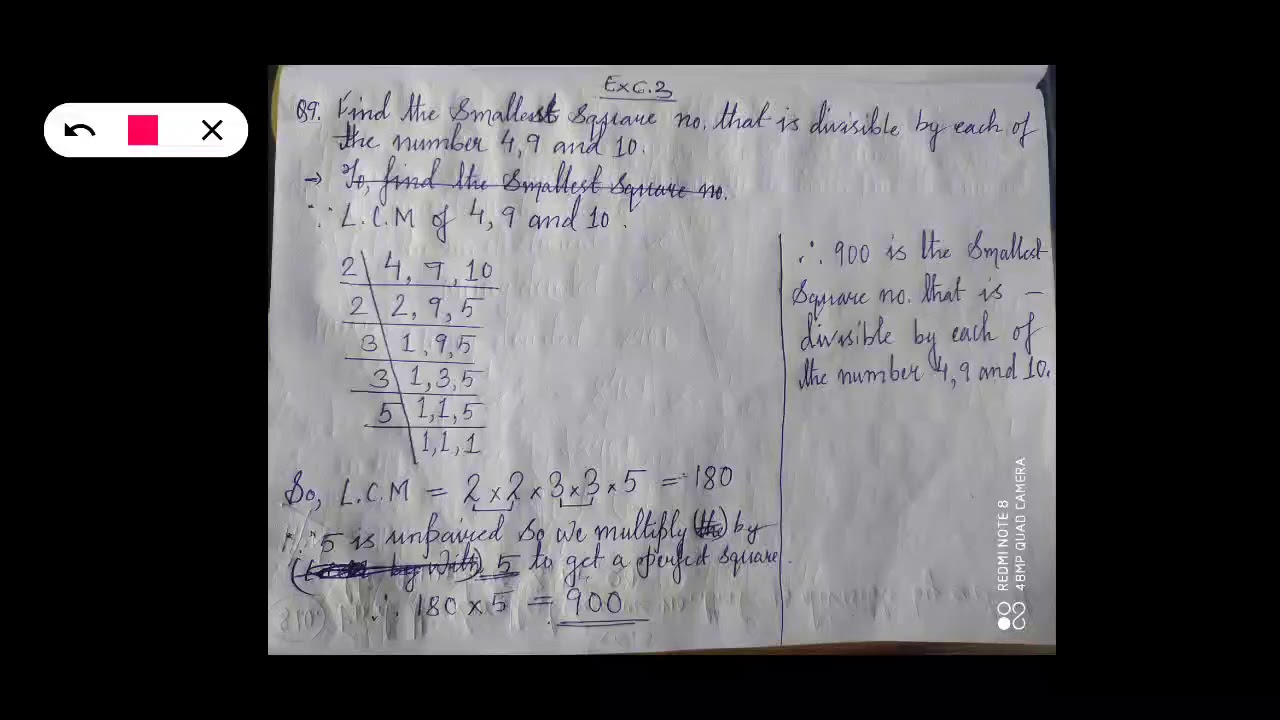 Ex 6.3
Q9. Find the Smallest Square no. that is divisible by each of
the number 4, 9 and 10.
→ To, find the Smallest Square no.
∵ L.C.M of 4, 9 and 10.
2 4, 9, 10
2 2, 9, 5
3 1, 9, 5
3 1, 3, 5
5 1, 1, 5
1, 1, 1
So, L.C.M = 2 × 2 × 3 × 3 × 5 = 180
∵ 5 is unpaired So we multiply (the) by
5 to get a perfect Square.
∴ 180 × 5 = 900
∴ 900 is the Smallest
Square no. that is –
divisible by each of
the number 4, 9 and 10.
REDMI NOTE 8
48MP QUAD CAMERA